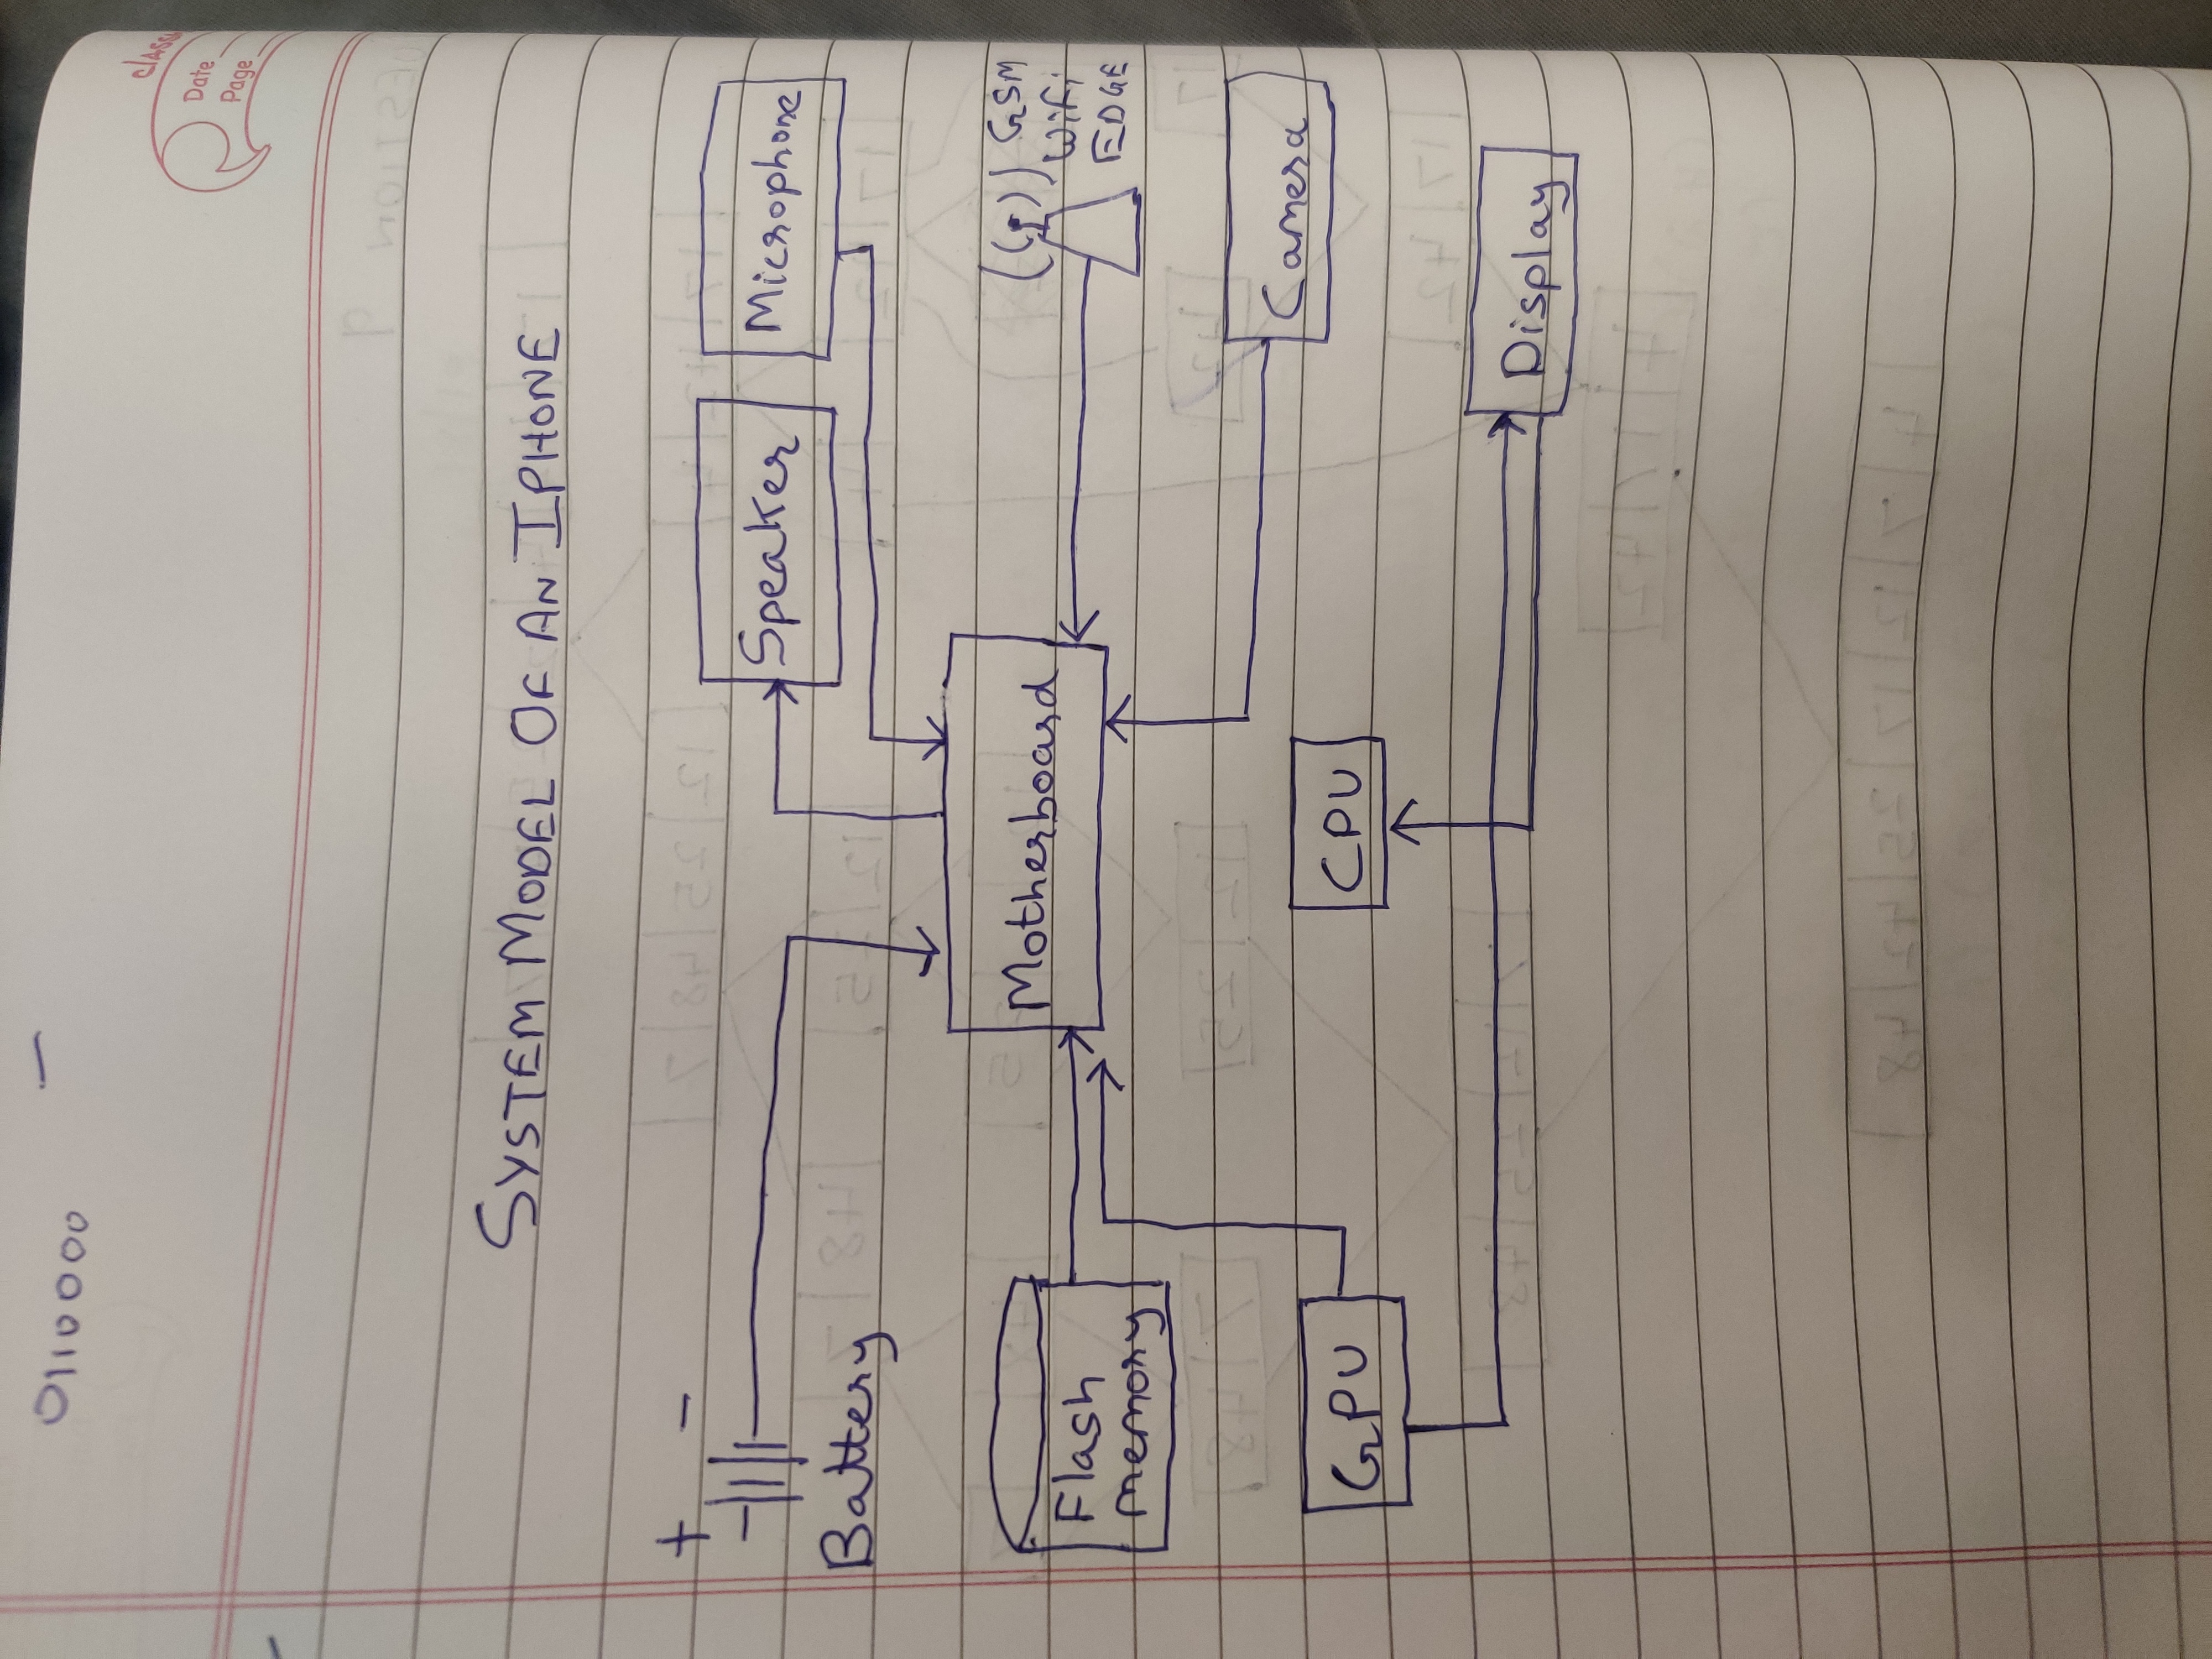 0110000
class
Date
Page
SYSTEM MODEL OF AN IPHONE
+ -
Battery
Speaker
Microphone
Motherboard
Flash
memory
GSM
WiFi
EDGE
GPU
CPU
Camera
Display